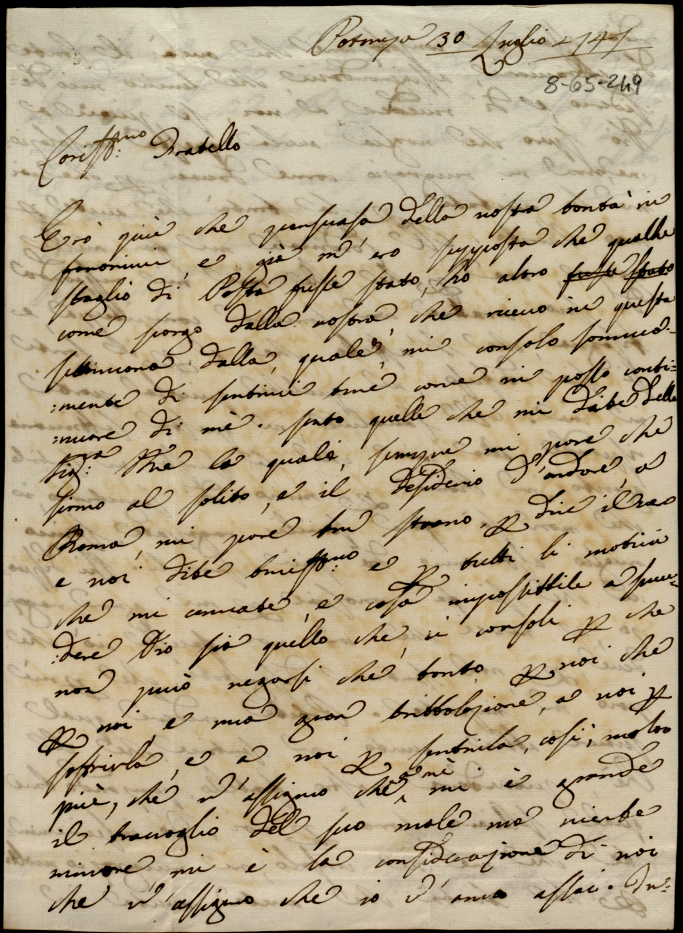 Potenza 30 Luglio 1747
8-65-249
Cariss:mo Fratello
Ero più che persuasa della vostra bontà in
favorirmi e già m'ero supposta che qualche
sbaglio di Posta fusse stato, ho altro fusse stato
come scorgo dalla vostra che ricevo in questa
settimana dalla quale, mi consolo sommea-
:mente di sentirvi bene come vi posso conti-
:nuare di mè. sento quelle che mi dite della
Sig:ra Mre la quale, sempre mi pare che
siamo al solito, e il desiderio d'andare a
Roma, mi pare ben strano, p dirla
e voi dite beniss:mo e p tutti li motivi
che mi cennate, e cosa impossibile a succe-
:dere Dio sia quello che, ci consoli p che
non può negarsi che tanto p voi che
p noi, e una gran tribbolazione, a voi p
soffrirla, e a noi p sentirla, così, molto
più, che v'assiguro che a mè mi è grande
il travaglio del suo male ma niente
minore mi è la considerazione di voi
che v'assiguro che io v'amo assai. In-